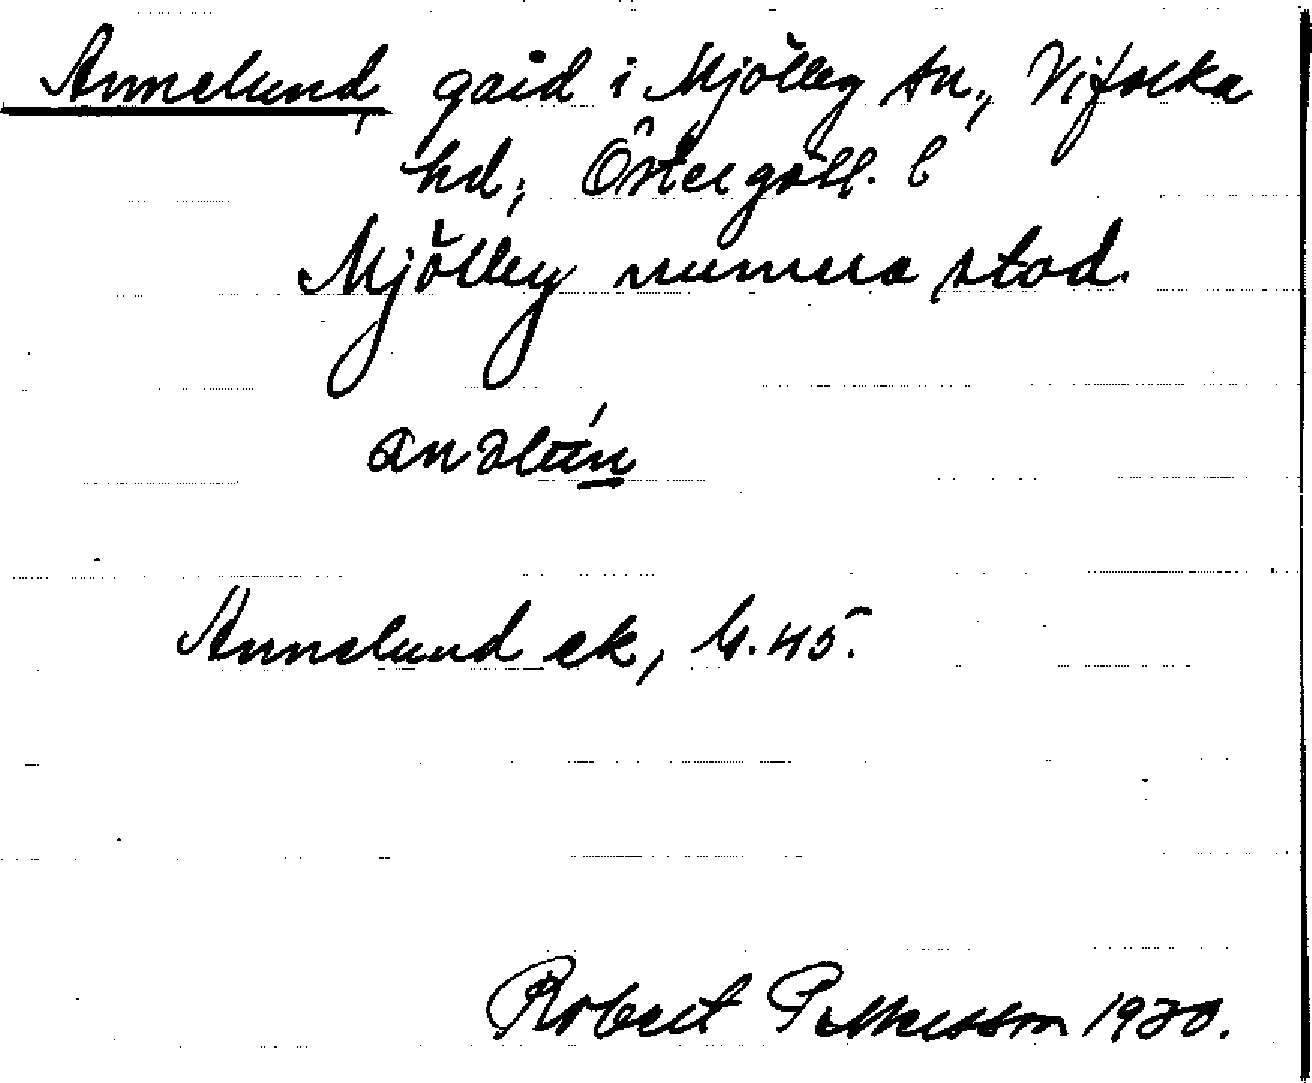 Annelund, gård i Mjölby sn., Vifolka
hd., Östergötl. l
Mjölby numera stad.
Annelund ek, M. 45.
Robert Pettersson 1930.